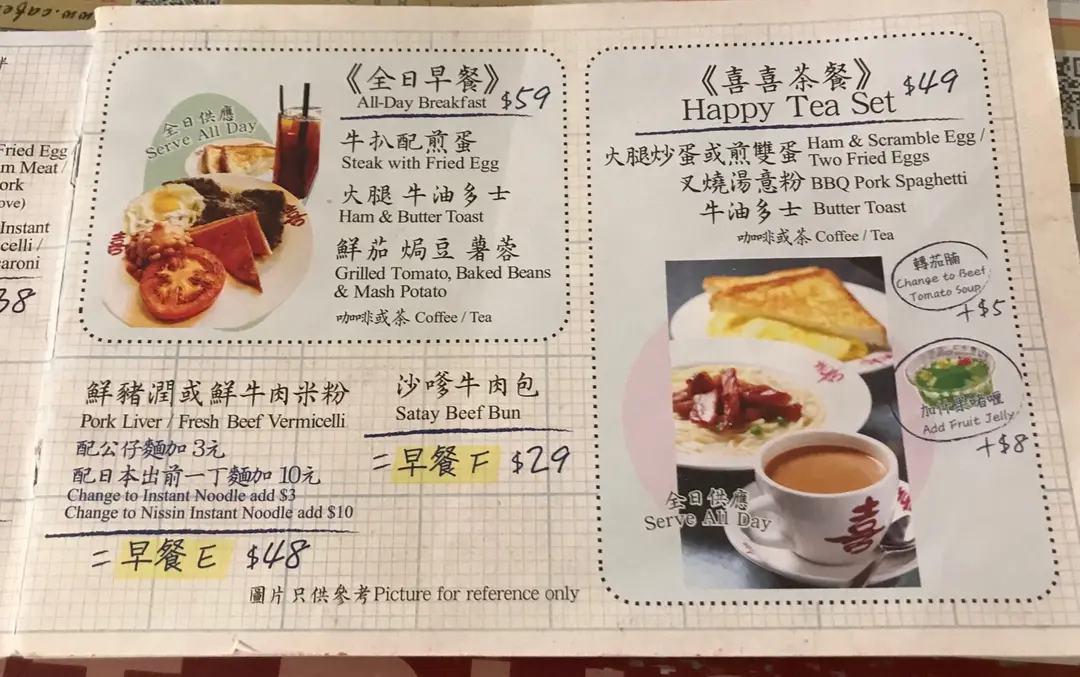 Fried Egg
m Meat /
ork
ove)
Instant
celli /
aroni
38
《全日早餐》
All-Day Breakfast $59
全日供應
Serve All Day
牛扒配煎蛋
Steak with Fried Egg
火腿 牛油多士
Ham & Butter Toast
鮮茄 焗豆 薯蓉
Grilled Tomato, Baked Beans
& Mash Potato
咖啡或茶 Coffee / Tea
鮮豬潤或鮮牛肉米粉
Pork Liver / Fresh Beef Vermicelli
配公仔麵加 3元
配日本出前一丁麵加 10元
Change to Instant Noodle add $3
Change to Nissin Instant Noodle add $10
= 早餐 E $48
沙嗲牛肉包
Satay Beef Bun
= 早餐 F $29
圖片只供參考 Picture for reference only
《喜喜茶餐》 $49
Happy Tea Set
火腿炒蛋或煎雙蛋 Ham & Scramble Egg /
Two Fried Eggs
叉燒湯意粉 BBQ Pork Spaghetti
牛油多士 Butter Toast
咖啡或茶 Coffee / Tea
轉茄腩
Change to Beef
Tomato Soup
+$5
Add Fruit Jelly
+$8
全日供應
Serve All Day
喜